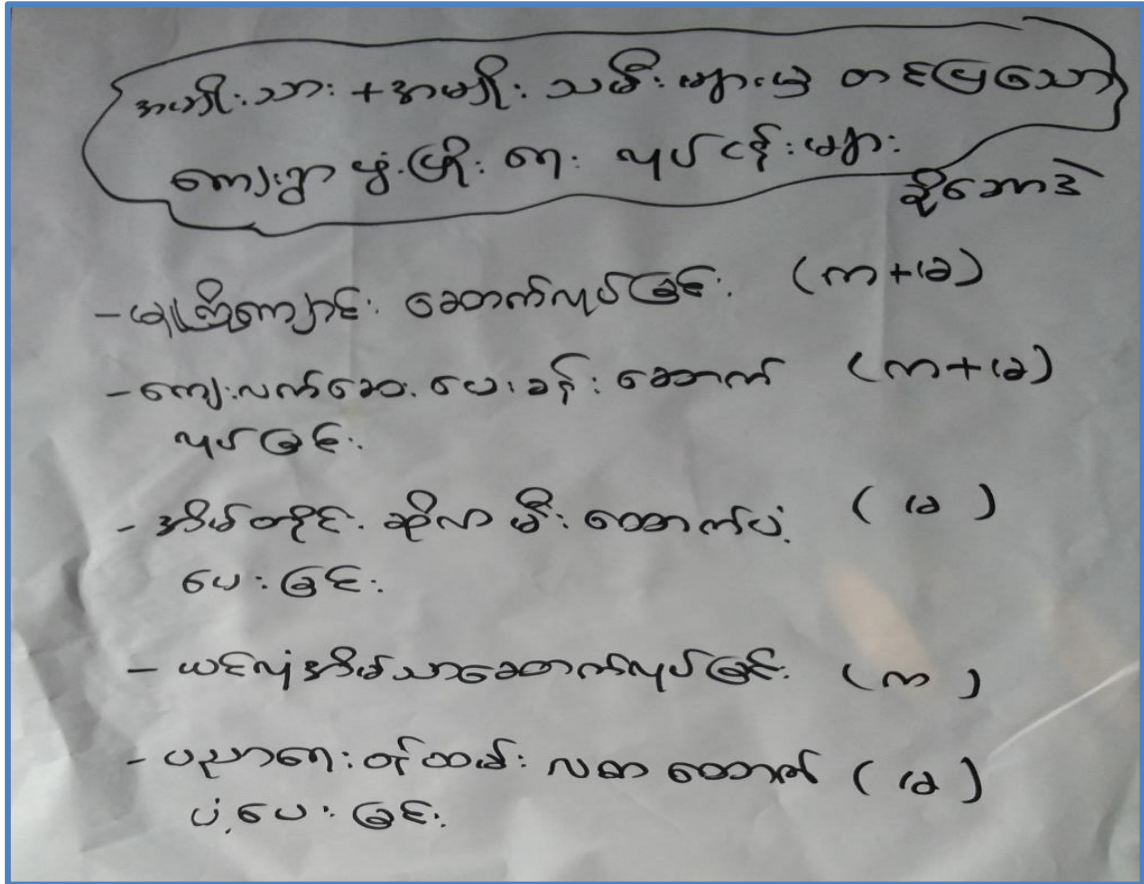 အမျိုးသား + အမျိုးသမီးများမှ တင်ပြသော
ကျေးရွာဖွံ့ဖြိုးရေး လုပ်ငန်းများ
- မူကြိုကျောင်း ဆောက်လုပ်ခြင်း (က+ခ)
- ကျေးလက်ဆေးပေးခန်း ဆောက် (က+ခ)
လုပ်ခြင်း
- အိမ်တိုင်း ဆိုလာမီး ထောက်ပံ့ (ခ)
ပေးခြင်း
- ယင်လုံအိမ်သာဆောက်လုပ်ခြင်း (က)
- ပညာရေးဝန်ထမ်း လစာ ထောက် (ခ)
ပံ့ပေးခြင်း